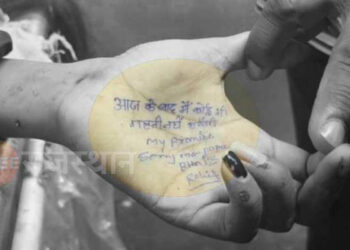 आज के बाद में कोई भी
गलती नहीं करूंगी
My Promise
Sorry mom papa
राजस्थान